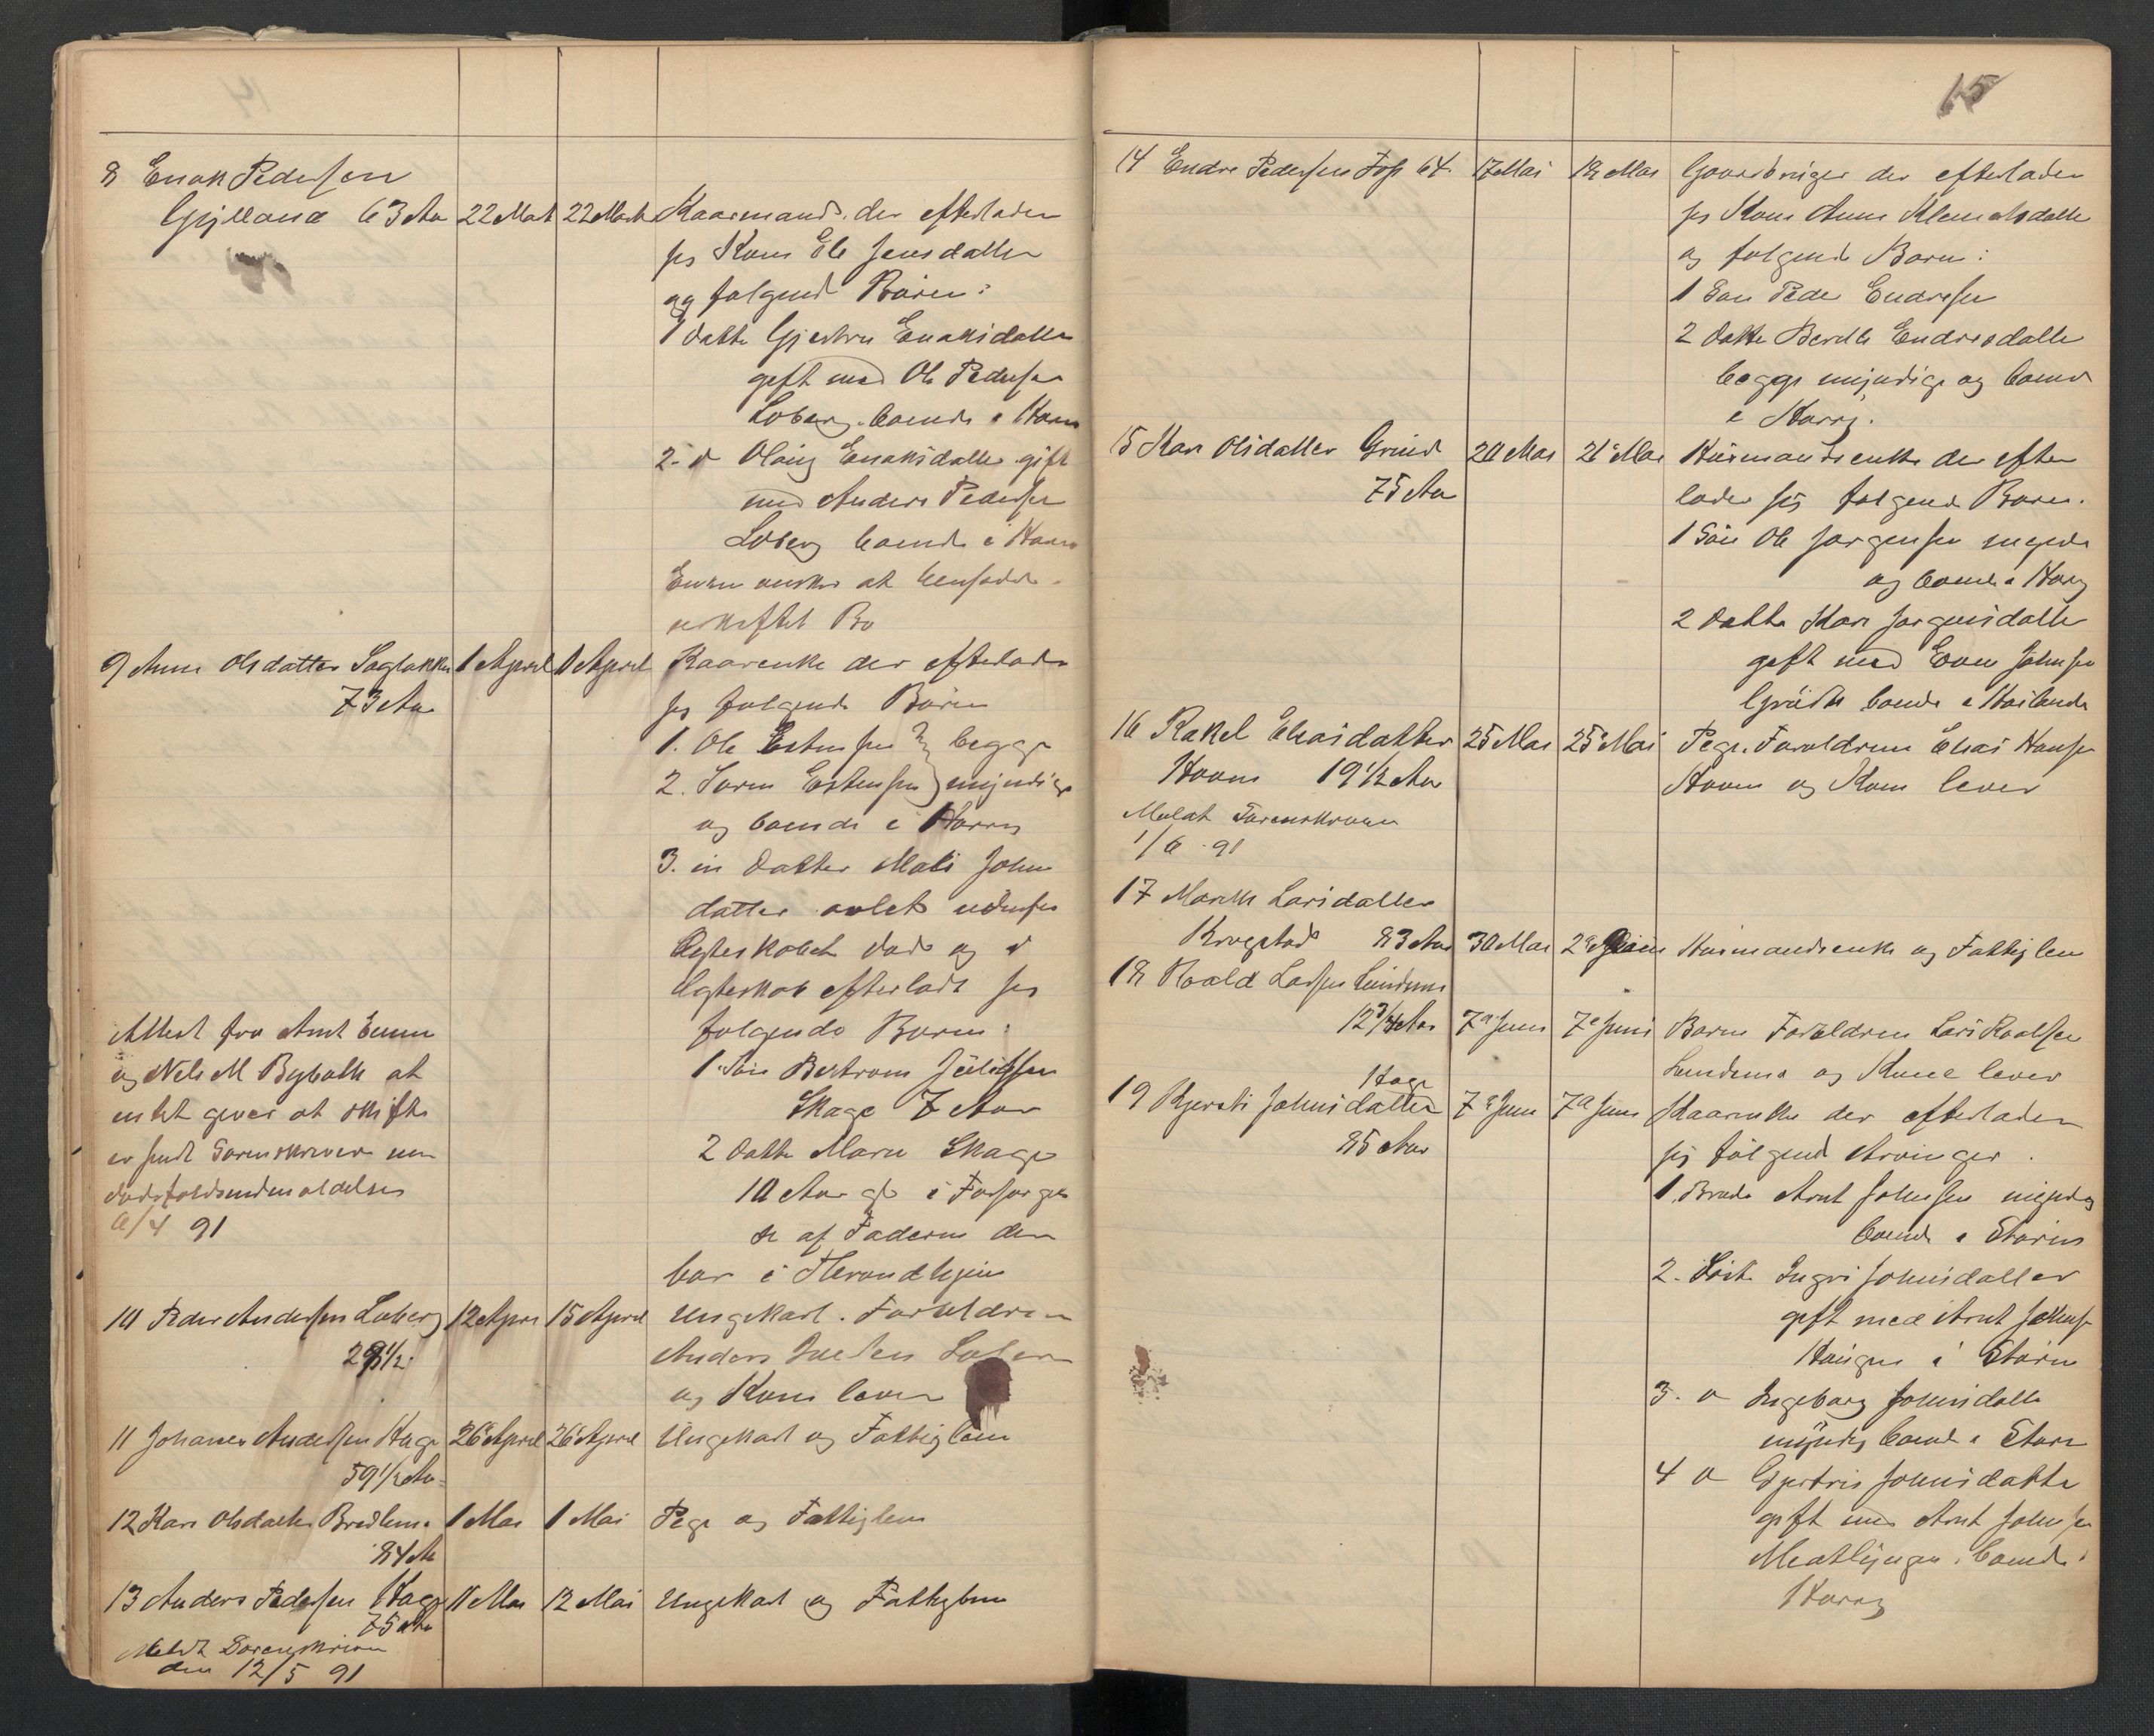 8 Enok Pedersen
Gylland 63 Aar 22 Marts 22 Marts Kaarmand. der efterlader
sig Kone Eli Jensdatter
og følgende Børn:
1 Datter Gjertru Enoksdatter
gift med Ole Pedersen
Loberg. boende i Horrig
2. d Olaug Enoksdatter gift
med Anders Pedersen
Loberg boende i Horrig
Enken ønsker at hensidde i
uskiftet Bo
9 Anne Olsdatter Sagbakken 1 April 1 April Kaarenke der efterlader
73 Aar
sig følgende Børn
1. Ole Estensen } begge
2. Søren Estensen } myndige
og boende i Horrig
3. en Datter Mali John
datter avlet udenfor
Egteskabet død og i
Egteskab efterladt sig
følgende Børn:
1. Søn Bertram Juliussen
Skage 7 Aar
2 Datter Maren Skage
10 Aar gl i Forsørgel
se af Faderen den
bor i Throndhjem
Attest fra Arnt Evenn
og Nils M Bybotk at
intet giver at skifte
er sendt Sorenskriver med
dødsfaldsanmeldelsen
6/4 91
10 Peder Andersen Loberg 12 April 15 April Ungekarl. Forældrene
28 1/2
Anders Loberg
og Kone lever
11 Johannes Andersen Hage 26 April 26 April Ungekarl og Fattiglem
59 1/2 Aar
12 Kari Olsdatter Bredlien 1 Mai 1 Mai Pige og Fattiglem
84 Aar
13 Anders Pedersen Hage 11 Mai 12 Mai Ungekarl og Fattiglem
75 Aar
Meldt Sorenskriveren
den 12/5 91
15
14 Endre Pedersen Foss 64. 17 Mai 18 Mai Gaardbruger der efterlader
sig Kone Anne Klemetsdatter
og følgende Børn:
1 Søn Peder Endresen
2 Datter Berith Endresdatter
begge myndige og boende
i Horrig.
15 Kari Olsdatter Grind 20 Mai 21 Mai Husmandsenke der efter
75 Aar
lader sig følgende Børn.
1 Søn Ole Jørgensen myndig
og boende i Horrig
2 Datter Kari Jørgensdatter
gift med Even Johnsen
boende i
16 Rakel Eliasdatter 25 Mai 25 Mai Pige. Forældrene Elias Hansen
Hovin 19 1/2 Aar
Hovin og Kone lever
Meldt Sorenskriveren
1/6 91
17 Marith Larsdatter
Krogstad 83 Aar 30 Mai 2 Juni Husmandsenke og Fattiglem
18 Roald Larsen Lundemo
12 3/4 Aar 7 Juni 7 Juni Barn Forældrene Lars Roalsen
Lundemo og Kone lever
19 Kjersti Johnsdatter Hage 7 Juni 7 Juni Kaarenke der efterlader
85 Aar
sig følgende Arvinger.
1. Broder Arnt Johnsen myndig
boende i Støren
2. Søster Ingri Johnsdatter
gift med Arnt Johnsen
Haugen i Støren
3. d Ingeborg Johnsdatter
myndig boende i Støren
4 d Gjertru Johnsdatter
gift med Arnt Johnsen
boende i
Horrig